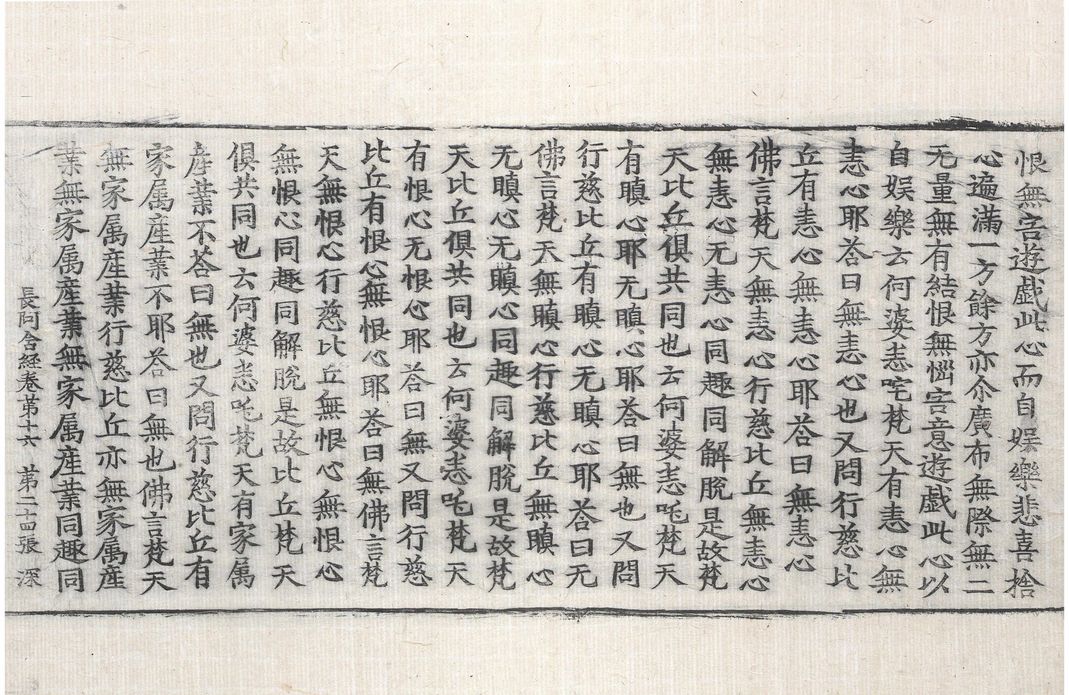 恨無害遊戯此心而自娱樂悲喜捨
心遍滿一方餘方亦尒廣布無際無二
无量無有結恨無惱害意遊戯此心以
自娱樂云何婆悉咤梵天有恚心無
恚心耶荅曰無恚心也又問行慈比
丘有恚心無恚心耶荅曰無恚心
佛言梵天無恚心行慈比丘無恚心
無恚心无恚心同趣同解脫是故梵
天比丘俱共同也云何婆悉咤梵天
有瞋心耶无瞋心耶荅曰無也又問
行慈比丘有瞋心无瞋心耶荅曰无
佛言梵天無瞋心行慈比丘無瞋心
无瞋心无瞋心同趣同解脫是故梵
天比丘俱共同也云何婆悉咤梵天
有恨心无恨心耶荅曰無又問行慈
比丘有恨心無恨心耶荅曰無佛言梵
天無恨心行慈比丘無恨心無恨心
無恨心同趣同解脫是故比丘梵天
俱共同也云何婆悉咤梵天有家属
産業不荅曰無也又問行慈比丘有
家属産業不耶荅曰無也佛言梵天
無家属産業行慈比丘亦無家属産
業無家属産業無家属産業同趣同
長阿含經卷苐十六 苐二十四張 深